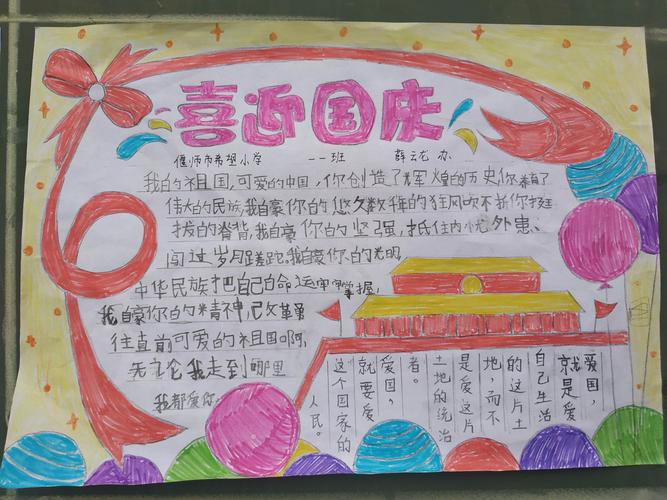 喜迎国庆
偃师市希望小学 一一班 薛云龙 办
我的祖国,可爱的中国,你创造了辉煌的历史,你养育了
伟大的民族,我自豪你的悠久数千年的狂风吹不折你挺
拔的脊背,我自豪你的坚强,抵住内忧外患、
闯过岁月蹉跎。我自豪你的光明,
中华民族把自己的命运牢牢掌握,
我自豪你的精神,改革勇
往直前可爱的祖国啊,
无论我走到哪里
我都爱你。
爱国,
就是爱
自己生活
的这片土
地,而不
是爱这片
土地的统治
者。
爱国,
就要爱
这个国家的
人民。